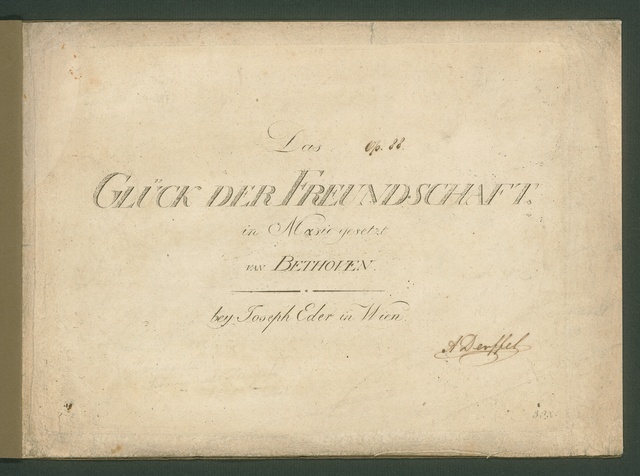 Das Op. 88.
GLÜCK DER FREUNDSCHAFT.
in Music gesetzt
van BETHOVEN.
bey Joseph Eder in Wien